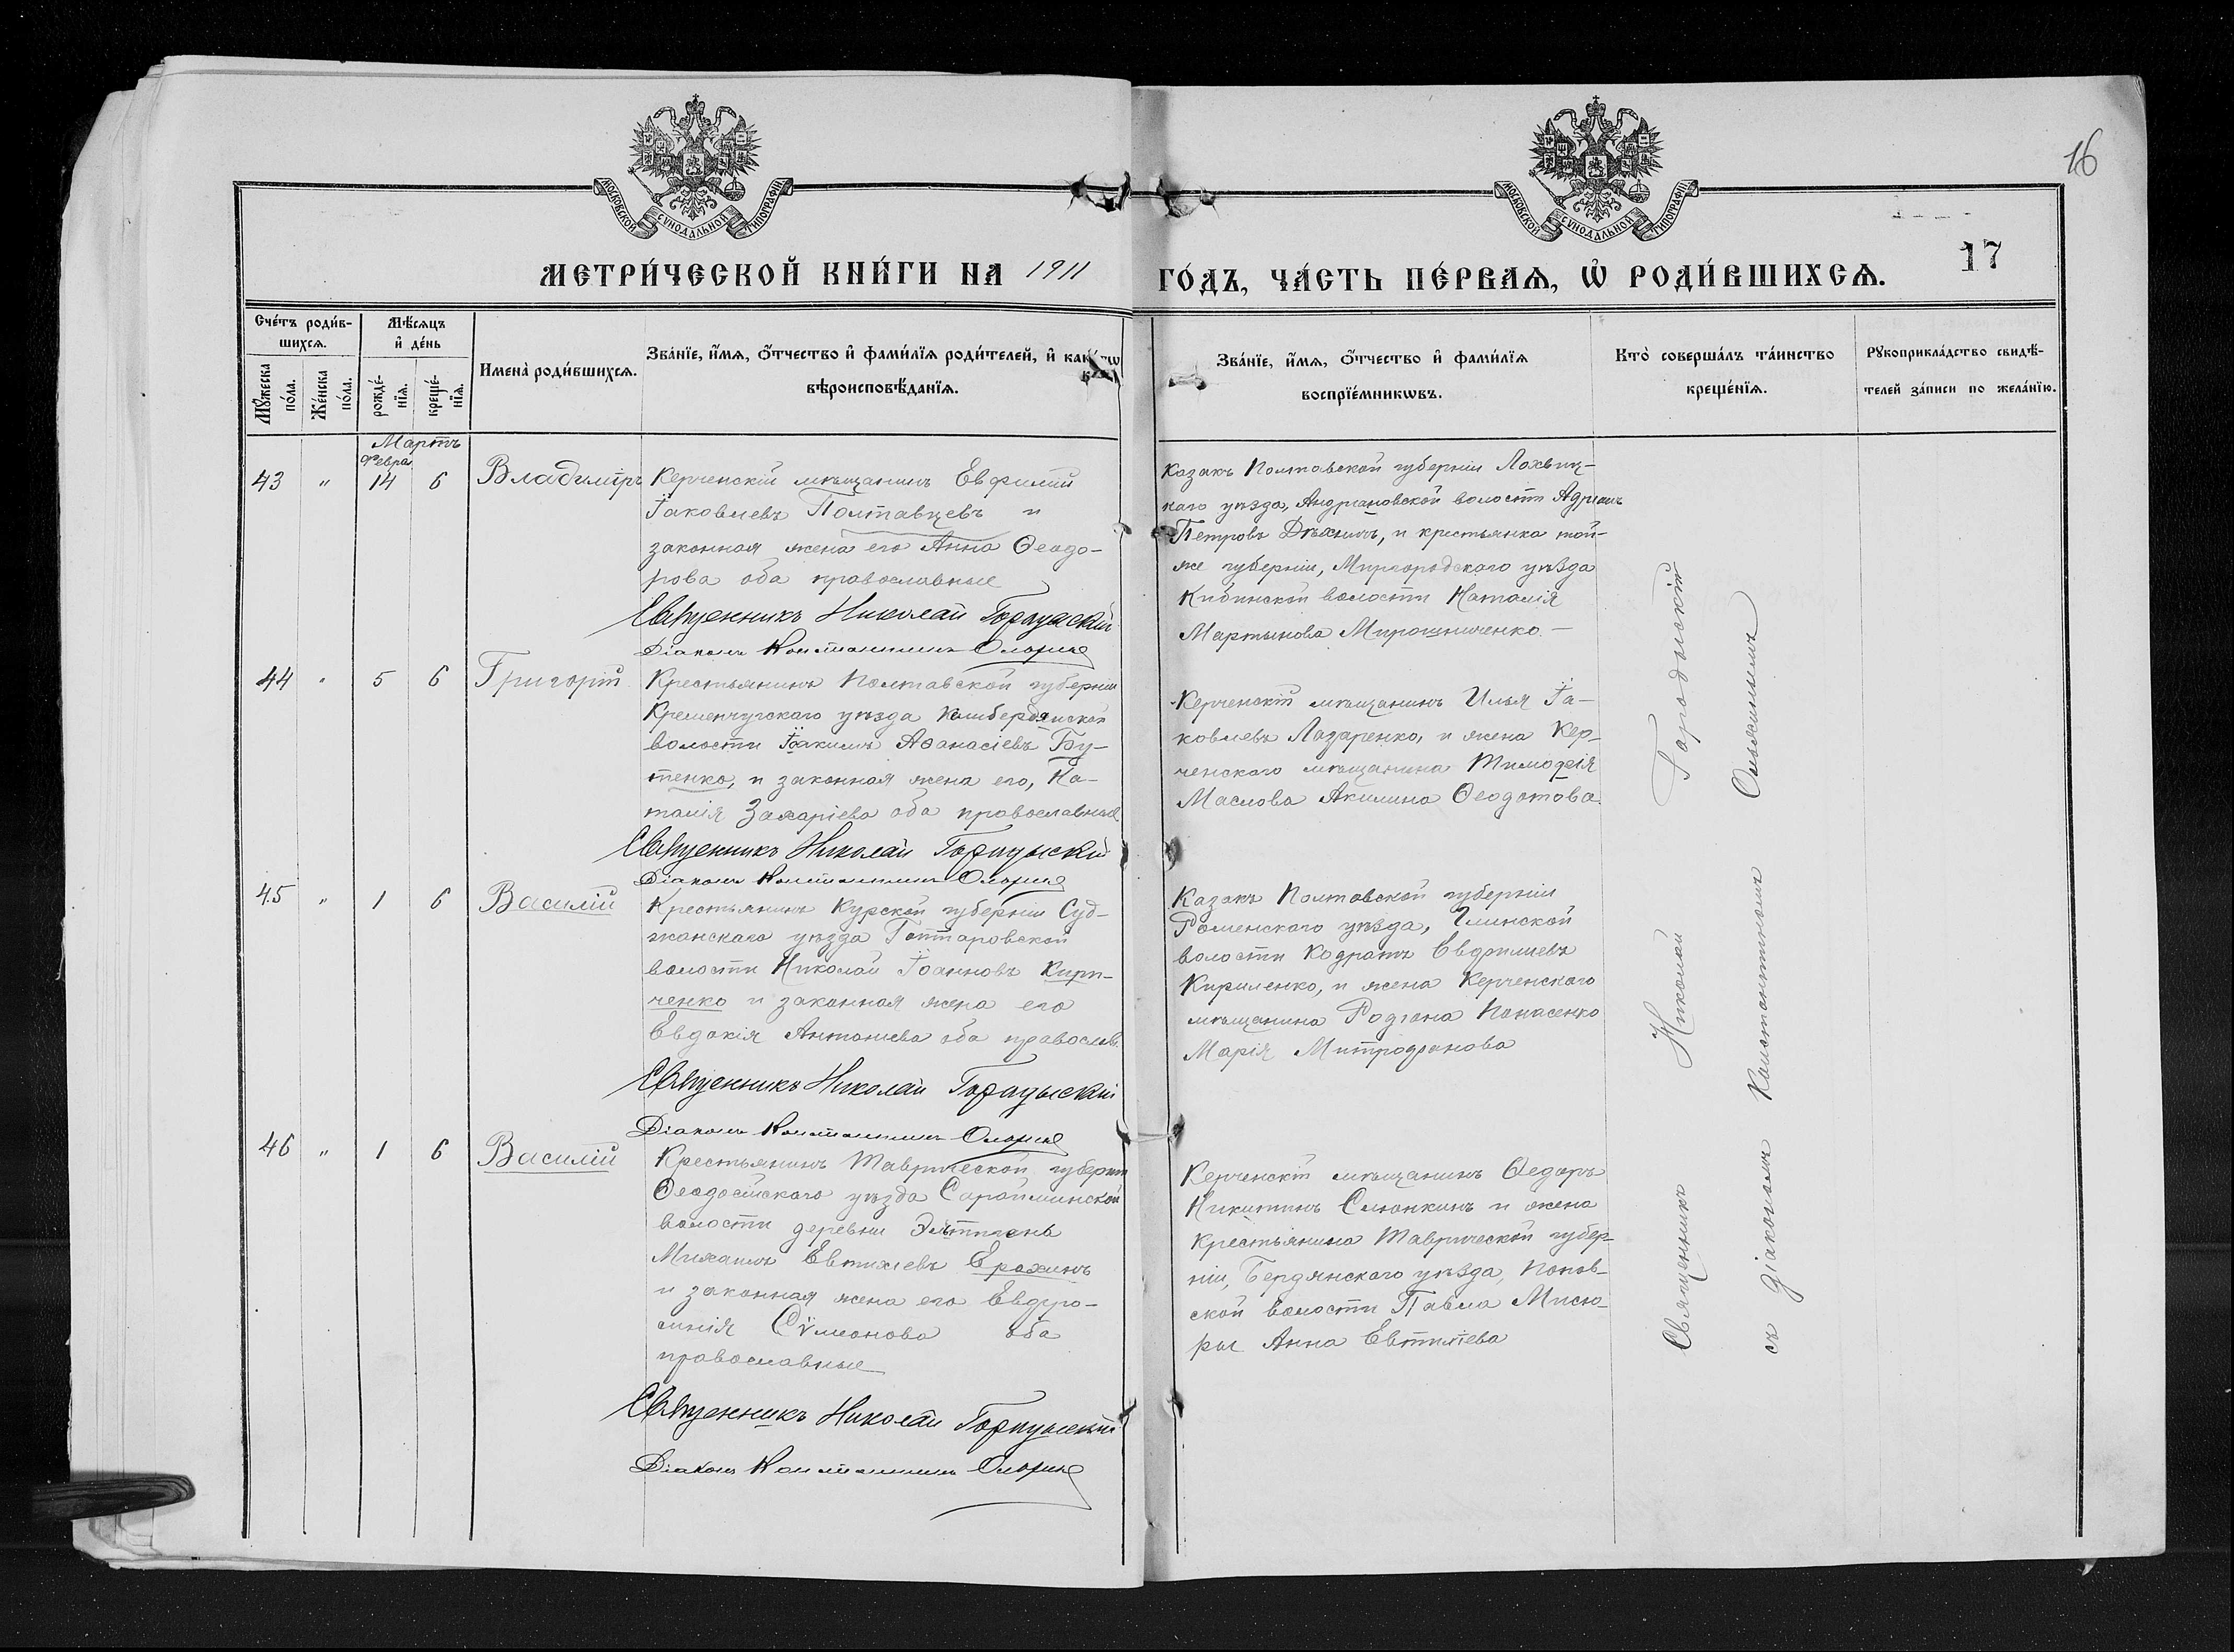 16
17
МОСКОВСКОЙ СУНОДАЛЬНОЙ ТИПОГРАФІИ
МОСКОВСКОЙ СУНОДАЛЬНОЙ ТИПОГРАФІИ
МЕТРИ́ЧЕСКОЙ КНИ́ГИ НА 1911 ГО́ДЪ, ЧА́СТЬ ПЕ́РВАѦ, Ѡ҆ РОДИ́ВШИХСѦ.
Сче́тъ роди́в-
шихсѧ.
Мꙋ́жеска по́ла.
Же́нска по́ла.
Мѣ́сѧцъ
и҆ де́нь
рожде́-
нїѧ.
креще́-
нїѧ.
Имена̀ роди́вшихсѧ.
Зва́нїе, и҆́мѧ, ѻ҆́тчество и҆ фами́лїѧ роди́телей, и҆
вѣроисповѣ́данїѧ.
Зва́нїе, и҆́мѧ, ѻ҆́тчество и҆ фами́лїѧ
воспрїе́мникѡвъ.
Кто̀ соверша́лъ та́инство
креще́нїѧ.
Рꙋкоприкла́дство свидѣ́-
телей за́писи по жела́нїю.
Мартъ
Феврал
43 " 14 6 Владиміръ
Керченскій мѣщанинъ Евфимій
Іаковлевъ Полтавцевъ и
законная жена его Анна Ѳеодо-
рова оба православные
Священникъ Николай
Діаконъ Константинъ
Козакъ Полтавской губерніи Лохвиц-
каго уѣзда, Андріановской волости Адріанъ
Петровъ, и крестьянка той-
же губерніи, Миргородскаго уѣзда
Кибинской волости Наталія
Мартынова Мирошниченко. —
44 " 5 6 Григорій
Крестьянинъ Полтавской губерніи
Кременчугскаго уѣзда
волости Іоакимъ Аѳанасіевъ Бу-
тенко, и законная жена его, На-
талія Захаріева оба православные
Священникъ Николай
Діаконъ Константинъ
Керченскій мѣщанинъ Илья Іа-
ковлевъ Лазаренко, и жена Кер-
ченскаго мѣщанина Тимофея
Маслова Акилина Ѳеодотова.
45 " 1 6 Василій
Крестьянинъ Курской губерніи Суд-
жанскаго уѣзда
волости Николай Іоанновъ Кири-
ченко и законная жена его
Евдокія Антониева оба православ.
Священникъ Николай
Діаконъ Константинъ
Казакъ Полтавской губерніи
Роменскаго уѣзда, Глинской
волости Кодратъ Евфимиевъ
Кириленко, и жена Керченскаго
мѣщанина Родіона Панасенко
Марія Митрофанова
46 " 1 6 Василій
Крестьянинъ Таврической губерніи
Ѳеодосійскаго уѣзда Сарайминской
волости деревни Эльтигень
Михаилъ Евтихіевъ Ерохинъ
и законная жена его Евфро-
синія Сѵмеонова оба
православные
Священникъ Николай
Діаконъ Константинъ
Керченскій мѣщанинъ Ѳедоръ
Никитинъ Слюнкинъ и жена
крестьянина Таврической губер-
ніи, Бердянскаго уѣзда, Попов-
ской волости Павла Мисю-
ры Анна Евтихіева
Священникъ Николай
съ діакономъ Константиномъ